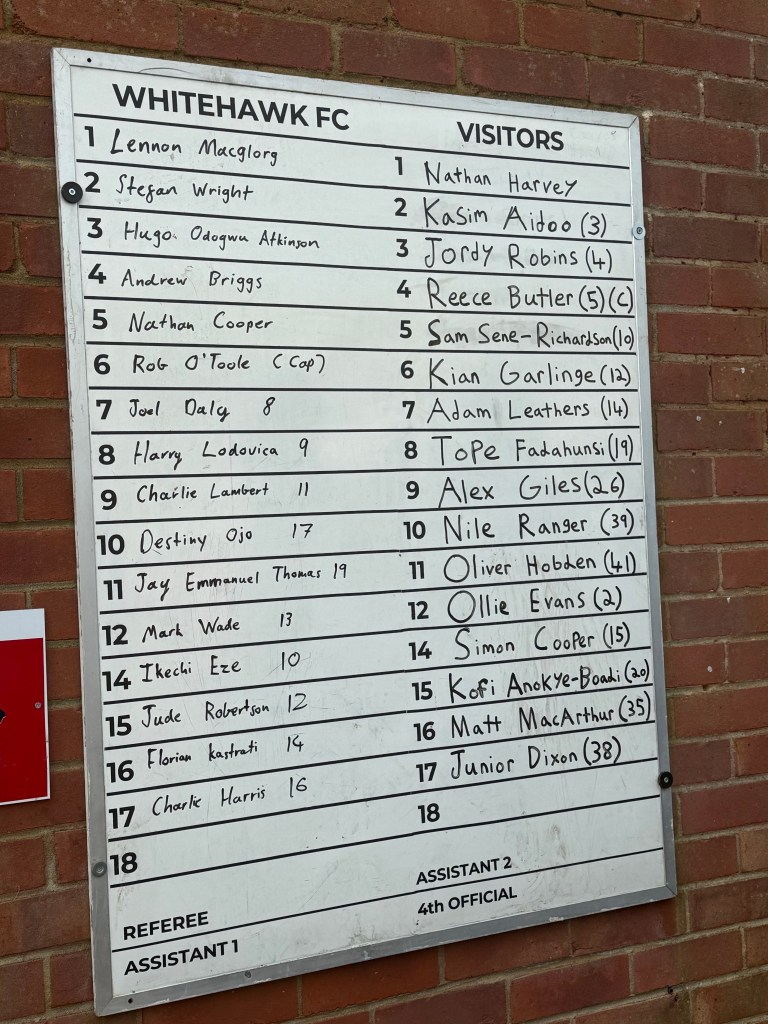 WHITEHAWK FC
1 Lennon Macglorg
2 Stefan Wright
3 Hugo Odogwu Atkinson
4 Andrew Briggs
5 Nathan Cooper
6 Rob O'Toole (Cap)
7 Joel Daly 8
8 Harry Lodovica 9
9 Charlie Lambert 11
10 Destiny Ojo 17
11 Jay Emmanuel Thomas 19
12 Mark Wade 13
14 Ikechi Eze 10
15 Jude Robertson 12
16 Florian Kastrati 14
17 Charlie Harris 16
18
REFEREE
ASSISTANT 1
VISITORS
1 Nathan Harvey
2 Kasim Aidoo (3)
3 Jordy Robins (4)
4 Reece Butler (5)(C)
5 Sam Sene-Richardson (10)
6 Kian Garlinge (12)
7 Adam Leathers (14)
8 Tope Fadahunsi (19)
9 Alex Giles (26)
10 Nile Ranger (39)
11 Oliver Hobden (41)
12 Ollie Evans (2)
14 Simon Cooper (15)
15 Kofi Anokye-Boadi (20)
16 Matt MacArthur (35)
17 Junior Dixon (38)
18
ASSISTANT 2
4th OFFICIAL